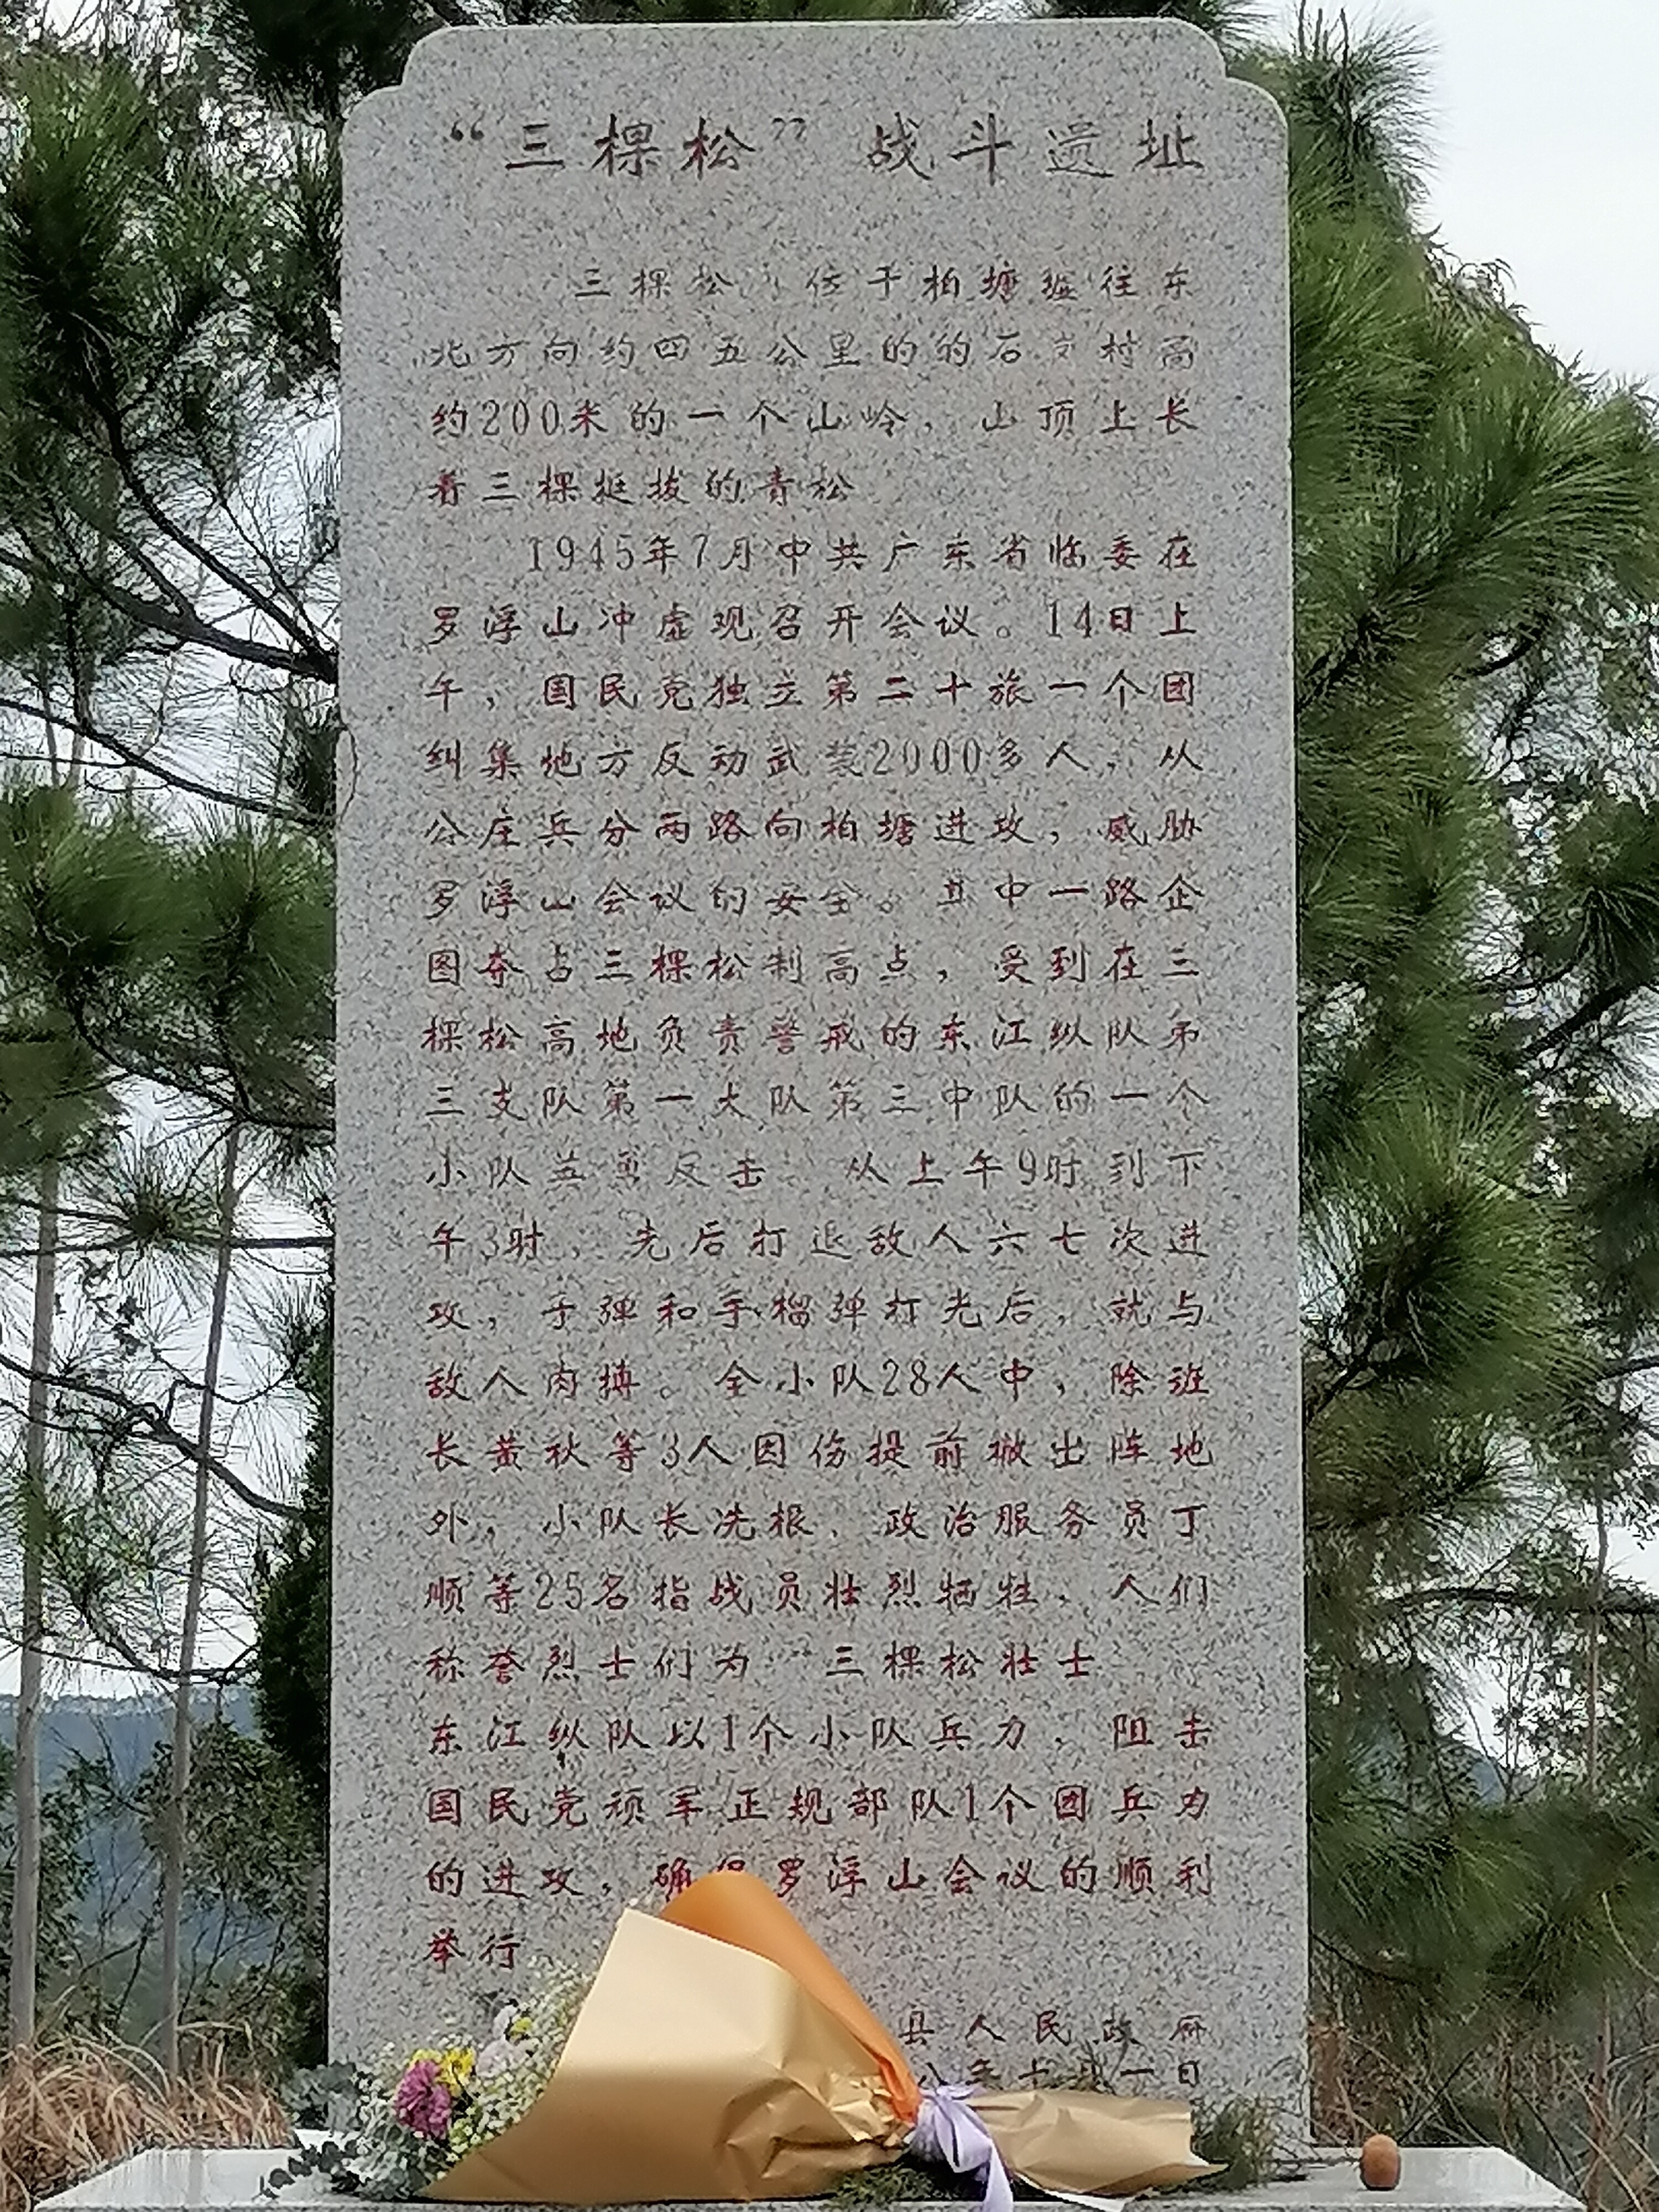 “三棵松”战斗遗址
三棵松，位于柏塘墟往东
北方向约四五公里的的石 村高
约200米的一个山岭，山顶上长
着三棵挺拔的青松
1945年7月中共广东省临委在
罗浮山冲虚观召开会议。14日上
午，国民党独立第二十旅一个团
纠集地方反动武装2000多人，从
公庄兵分两路向柏塘进攻，威胁
罗浮山会议的安全。其中一路企
图夺占三棵松制高点，受到在三
棵松高地负责警戒的东江纵队第
三支队第一大队第三中队的一个
小队英勇反击 从上午9时到下
午3时，先后打退敌人六七次进
攻，子弹和手榴弹打光后，就与
敌人肉搏。全小队28人中，除班
长黄秋等3人因伤提前撤出阵地
外，小队长冼根、政治服务员丁
顺等25名指战员壮烈牺牲，人们
称誉烈士们为“三棵松壮士
东江纵队以1个小队兵力，阻击
国民党顽军正规部队1个团兵为
的进攻，确保罗浮山会议的顺利
举行
县人民政府
八年十 一日